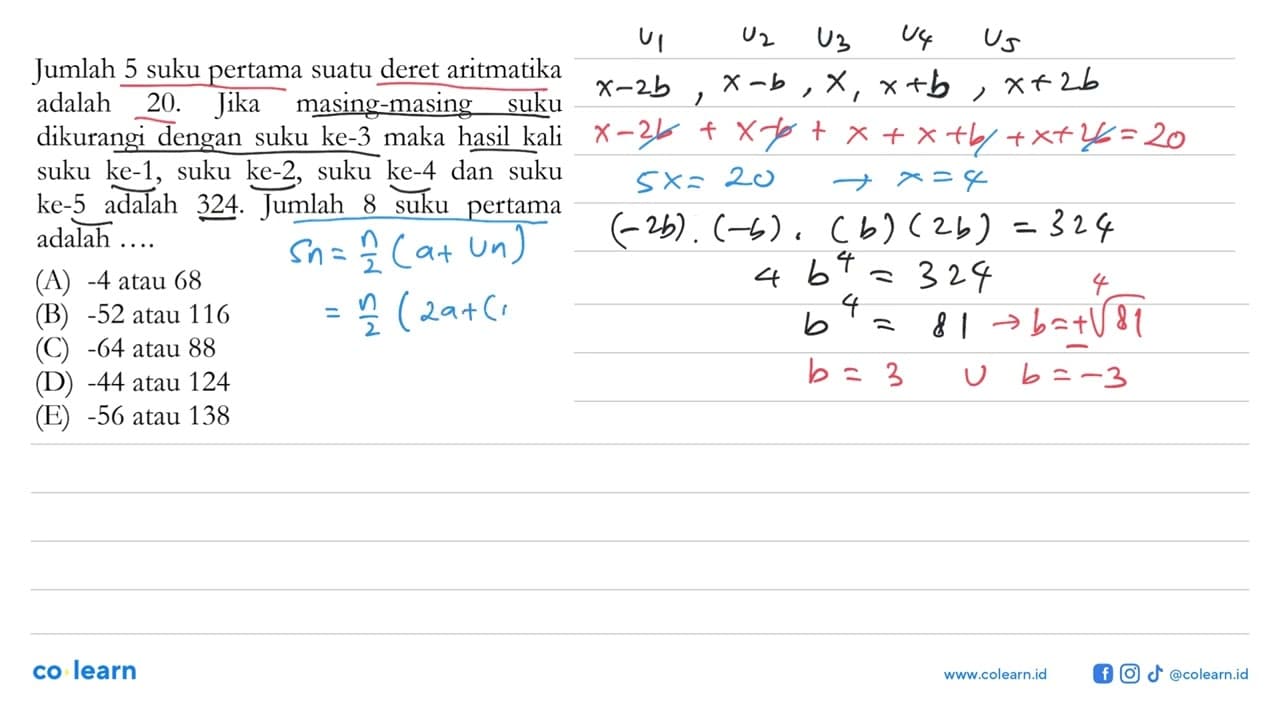 Jumlah 5 suku pertama suatu deret aritmatika
adalah 20. Jika masing-masing suku
dikurangi dengan suku ke-3 maka hasil kali
suku ke-1, suku ke-2, suku ke-4 dan suku
ke-5 adalah 324. Jumlah 8 suku pertama
adalah ....
(A) -4 atau 68
(B) -52 atau 116
(C) -64 atau 88
(D) -44 atau 124
(E) -56 atau 138
Sn = n/2 (a + Un)
= n/2 (2a + (
U1 U2 U3 U4 U5
x-2b, x-b, x, x+b, x+2b
x-2b + x-b + x + x+b + x+2b = 20
5x = 20 → x = 4
(-2b). (-b). (b) (2b) = 324
4 b⁴ = 324
b⁴ = 81 → b = ±⁴√81
b = 3 ∪ b = -3
co learn
www.colearn.id
@colearn.id